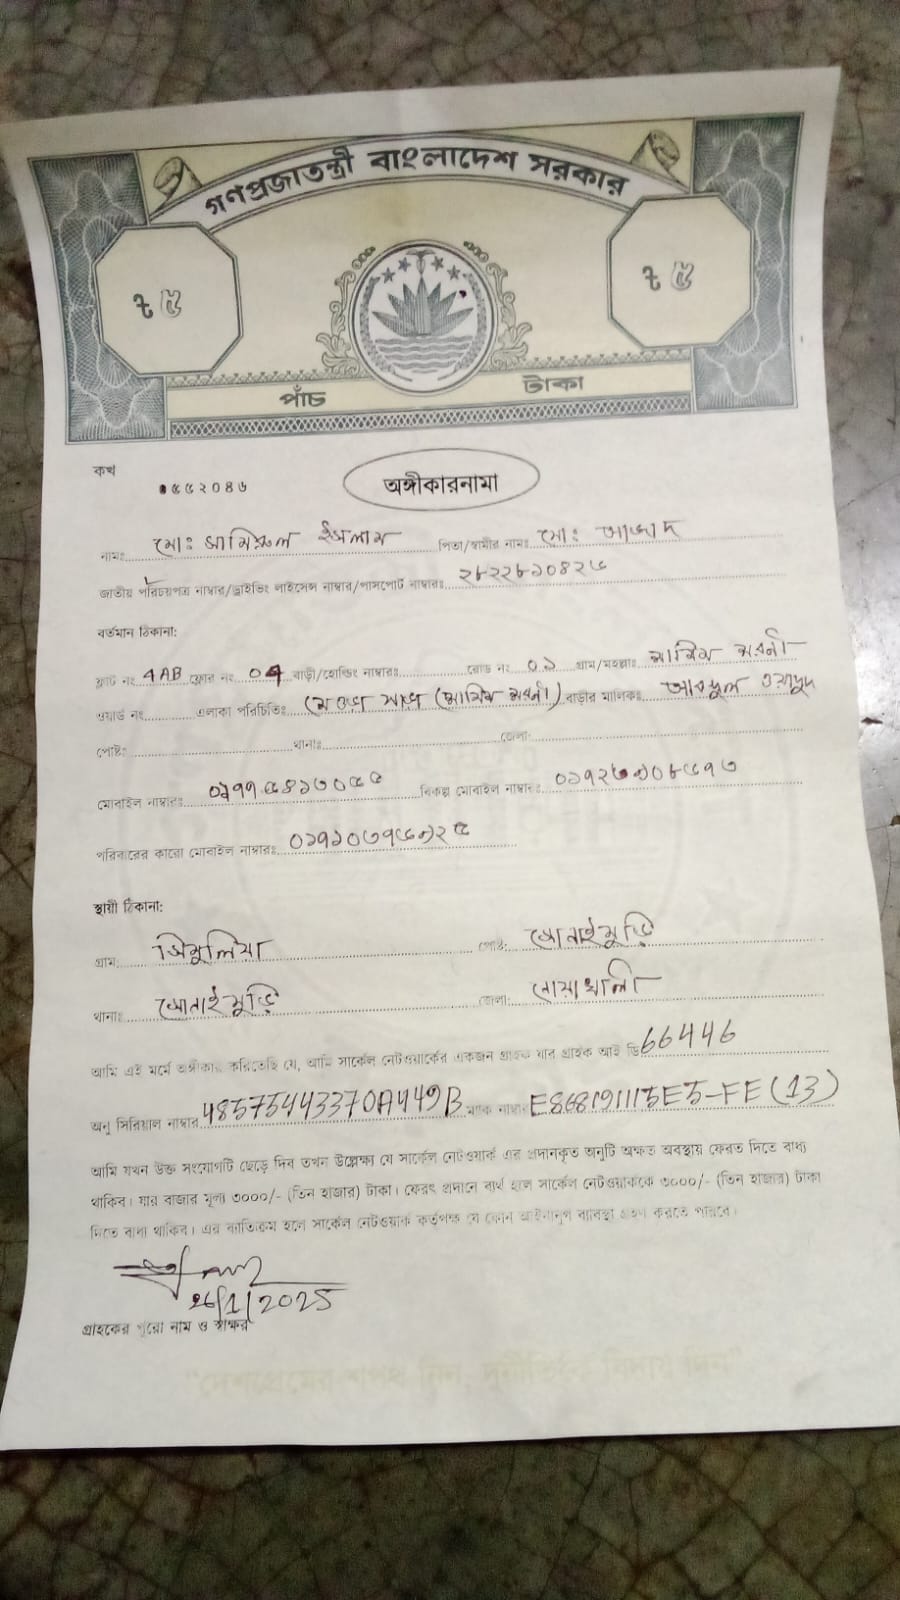 গণপ্রজাতন্ত্রী বাংলাদেশ সরকার
৳ ৫ ৳ ৫
পাঁচ টাকা
কখ
অঙ্গীকারনামা
নামঃ মোঃ সামিরুল ইসলাম পিতা/স্বামীর নামঃ মোঃ আজাদ
জাতীয় পরিচয়পত্র নাম্বার/ড্রাইভিং লাইসেন্স নাম্বার/পাসপোর্ট নাম্বারঃ
বর্তমান ঠিকানা:
ফ্লাট নং 4AB ফ্লোর নং বাড়ী/হোল্ডিং নাম্বারঃ রোড নং ০১ গ্রাম/মহল্লাঃ
ওয়ার্ড নং এলাকা পরিচিতিঃ বাড়ীর মালিকঃ আবদুল ওয়াদুদ
পোষ্টঃ থানাঃ জেলা:
মোবাইল নাম্বারঃ বিকল্প মোবাইল নাম্বারঃ
পরিবারের কারো মোবাইল নাম্বারঃ
স্থায়ী ঠিকানা:
গ্রাম: সিমুলিয়া পোষ্ট: সোনাইমুড়ি
থানাঃ সোনাইমুড়ি জেলা: নোয়াখালী
আমি এই মর্মে অঙ্গীকার করিতেছি যে, আমি সার্কেল নেটওয়ার্কের একজন গ্রাহক যার গ্রাহক আই ডি 66446
অনু সিরিয়াল নাম্বার 48575443370A449B ম্যাক নাম্বার
আমি যখন উক্ত সংযোগটি ছেড়ে দিব তখন উল্লেক্ষা যে সার্কেল নেটওয়ার্ক এর প্রদানকৃত অনুটি অক্ষত অবস্থায় ফেরত দিতে বাধ্য
থাকিব। যার বাজার মূল্য ৩০০০/- (তিন হাজার) টাকা। ফেরৎ প্রদানে ব্যর্থ হলে সার্কেল নেটওয়ার্ককে ৩০০০/- (তিন হাজার) টাকা
দিতে বাধ্য থাকিব। এর ব্যতিক্রম হলে সার্কেল নেটওয়ার্ক কর্তৃপক্ষ যে কোন আইনানুগ ব্যাবস্থা গ্রহণ করতে পারিবে।
26/1/2025
গ্রাহকের পুরো নাম ও স্বাক্ষর
"দেশপ্রেমের শপথ নিন, দুর্নীতিকে বিদায় দিন"